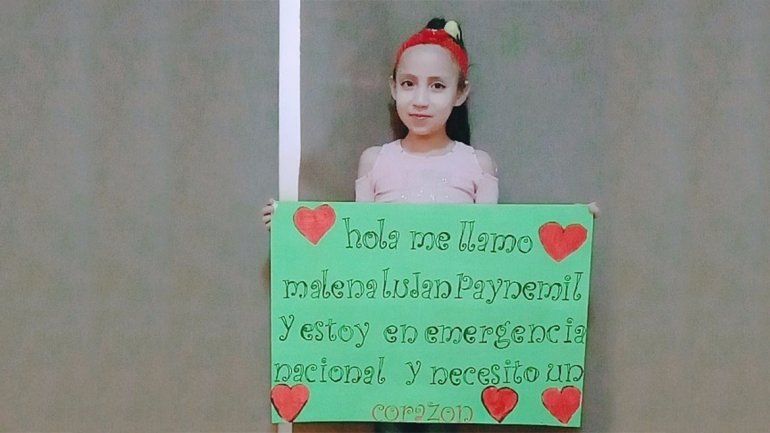 hola me llamo
malena luJan Paynemil
y estoy en emergencia
nacional y necesito un
corazon